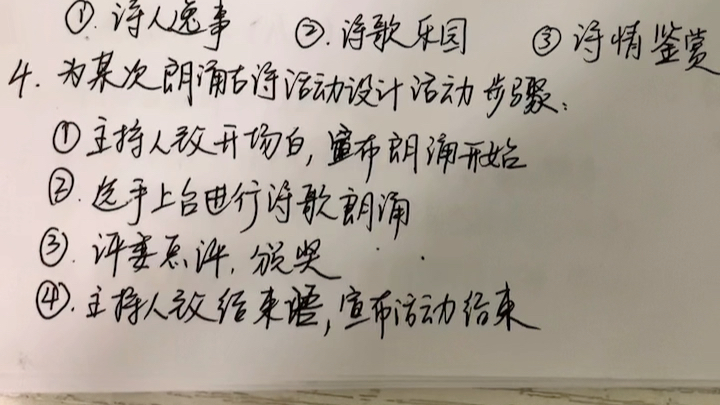 ①. 诗人逸事 ②. 诗歌乐园 ③ 诗情鉴赏
4. 为某次朗诵古诗活动设计活动步骤:
① 主持人致开场白, 宣布朗诵开始
②. 选手上台进行诗歌朗诵
③. 评委点评, 颁奖
④. 主持人致结束语, 宣布活动结束